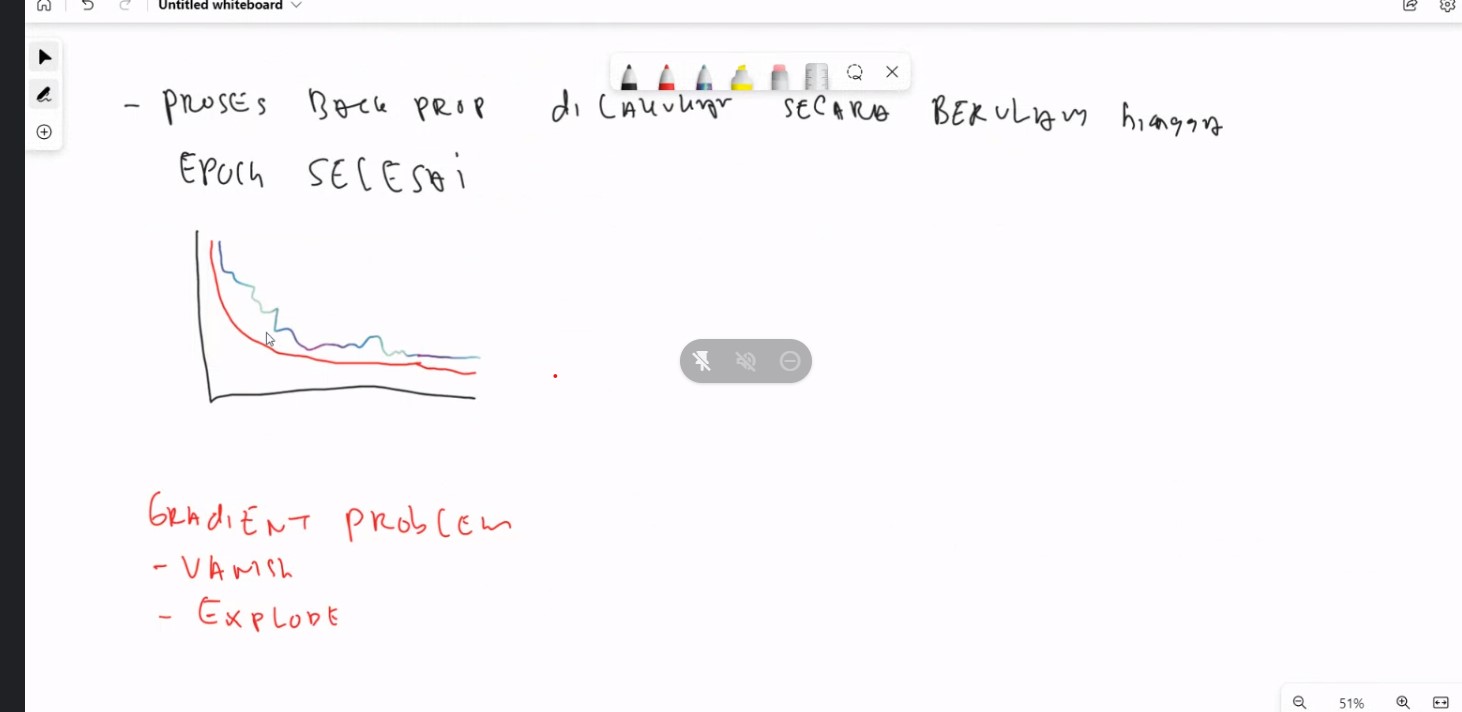 Untitled whiteboard
- PROSES BACK PROP diLAKUKAN SECARA BERULANG hingga
EPOCH SELESAi
GRAdiENT PRObLEM
- VANISH
- EXPLODE
51%